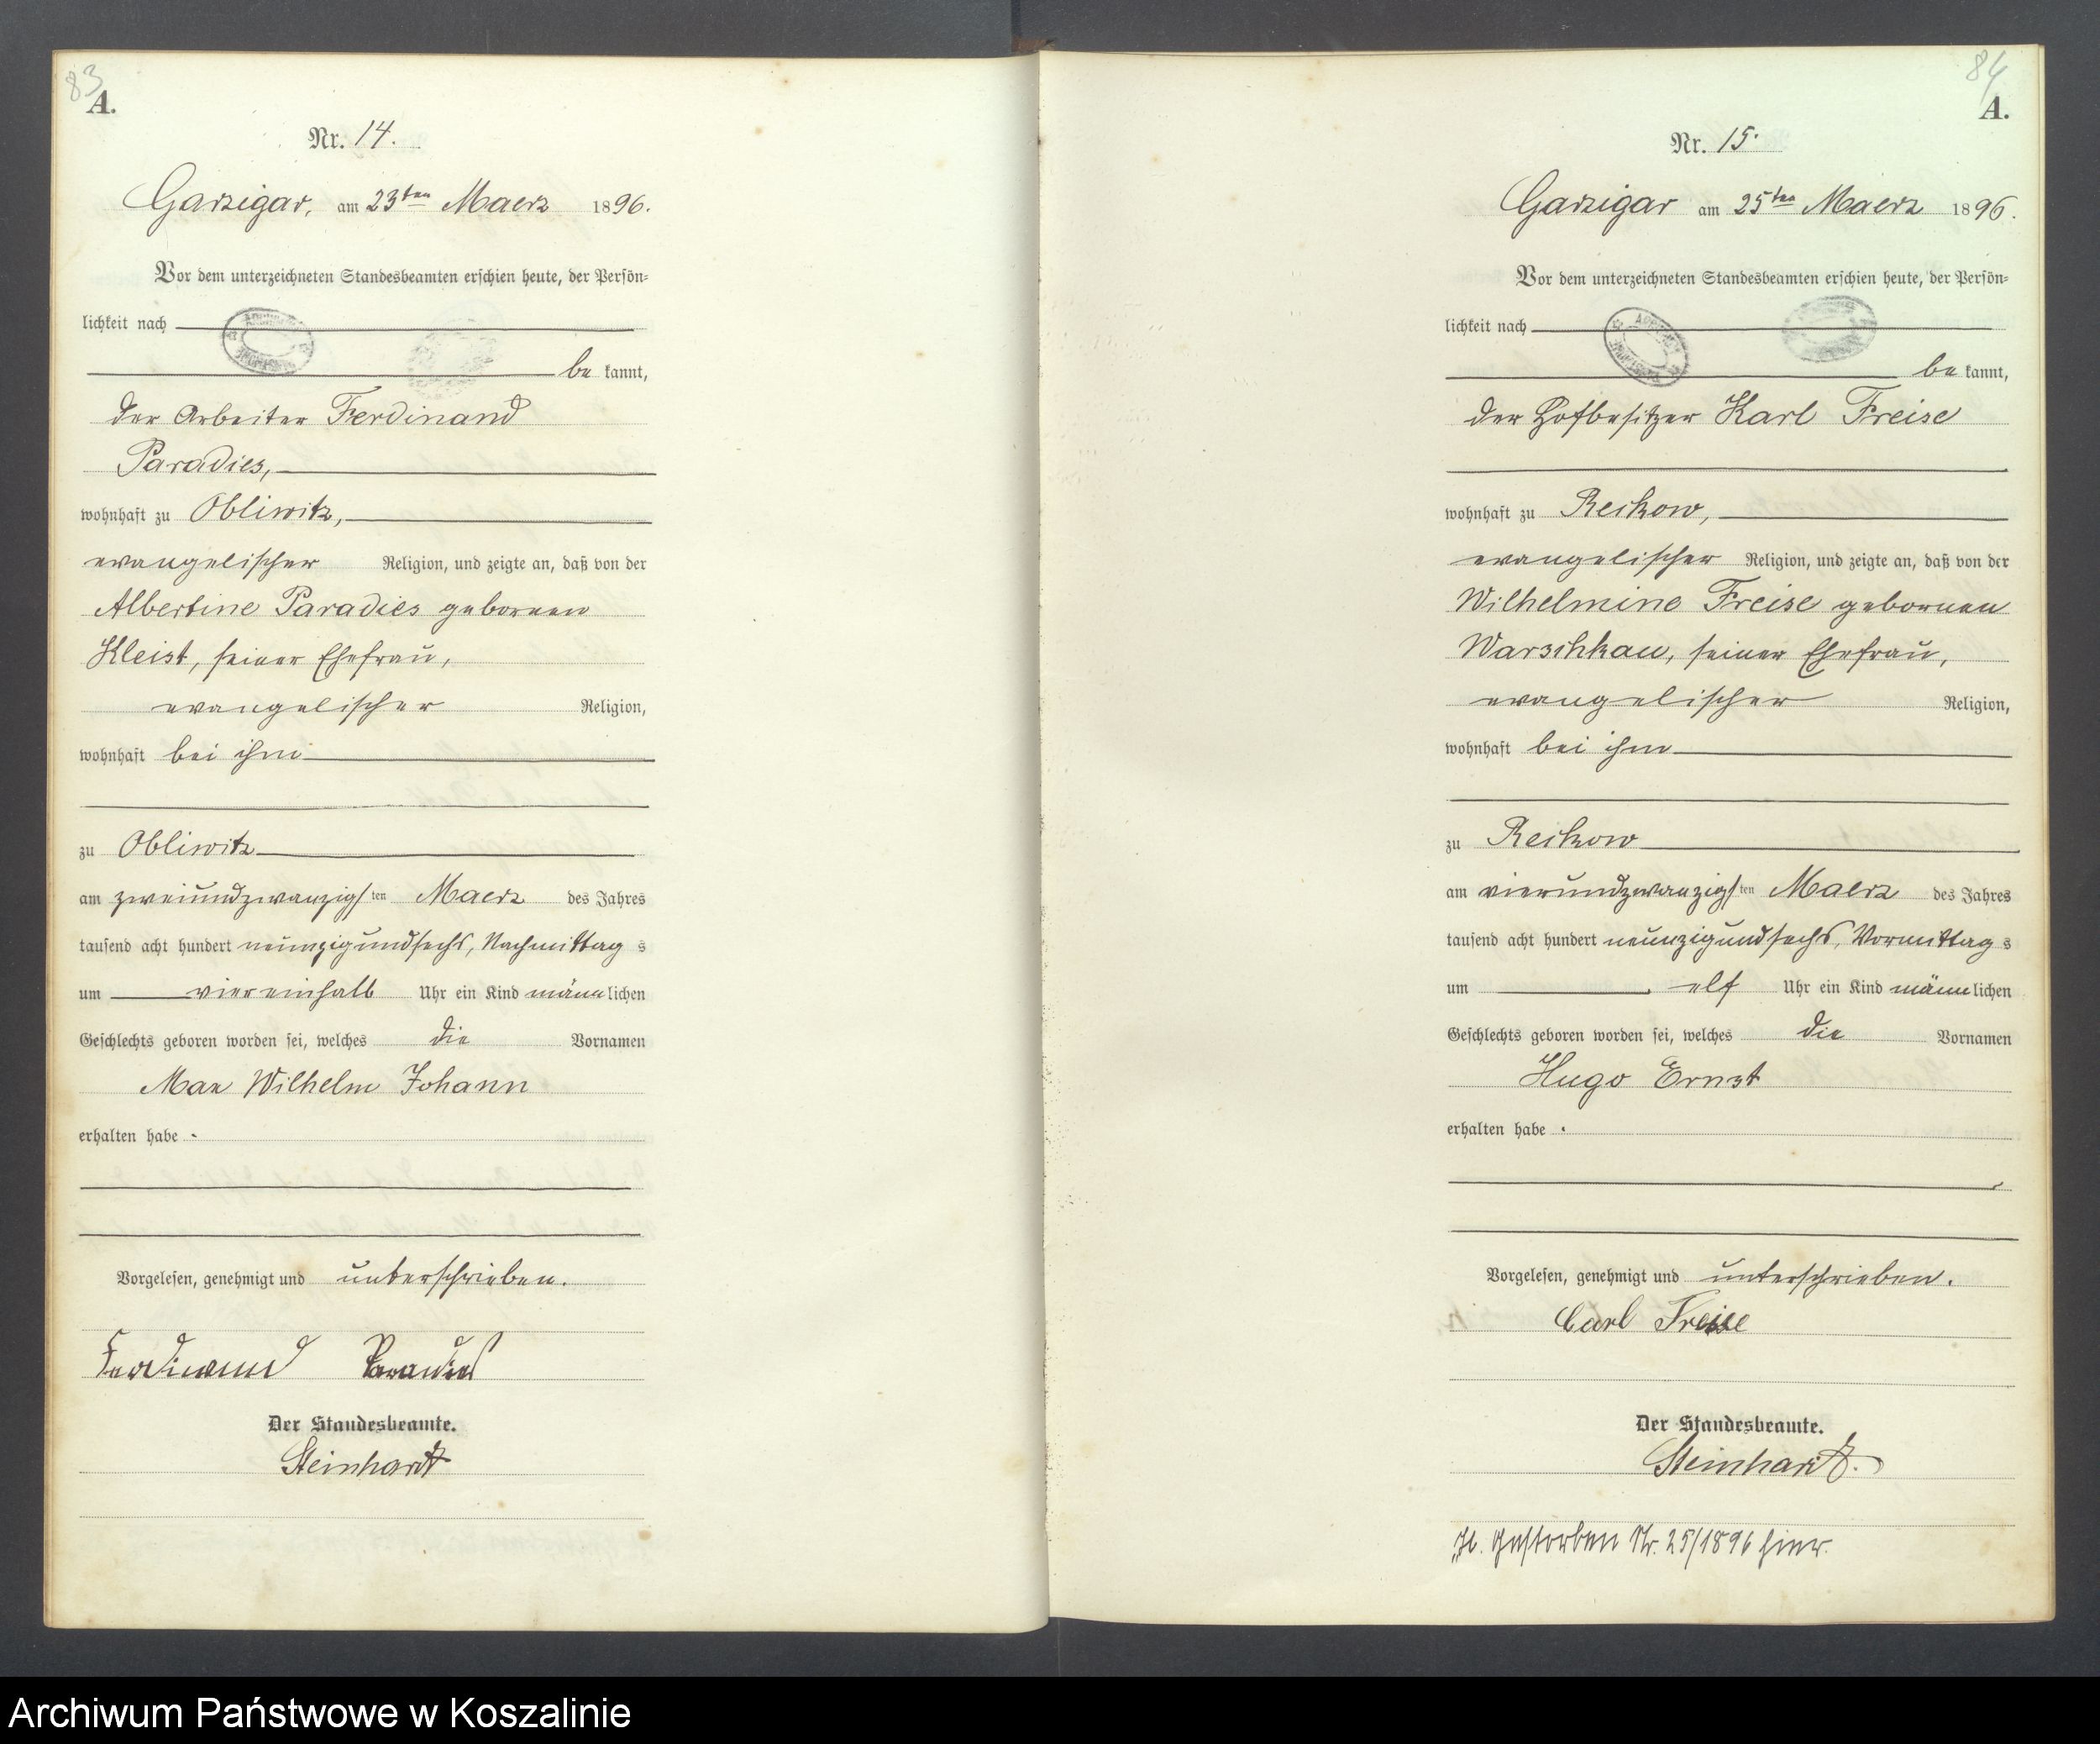 83
A.
Nr. 14.
Garzigar, am 23ten Maerz 1896.
Vor dem unterzeichneten Standesbeamten erschien heute, der Persön=
lichkeit nach
be kannt,
der Arbeiter Ferdinand
Paradies,
wohnhaft zu Obliwitz,
evangelischer Religion, und zeigte an, daß von der
Albertine Paradies gebornen
Kleist, seiner Ehefrau,
evangelischer Religion,
wohnhaft bei ihm
zu Obliwitz
am zweiundzwanzigsten Maerz des Jahres
tausend acht hundert neunzigundsechs, Nachmittag s
um viereinhalb Uhr ein Kind männlichen
Geschlechts geboren worden sei, welches die Vornamen
Max Wilhelm Johann
erhalten habe.
Vorgelesen, genehmigt und unterschrieben.
Ferdinand Paradies
Der Standesbeamte.
Steinhardt
84
A.
Nr. 15.
Garzigar am 25ten Maerz 1896.
Vor dem unterzeichneten Standesbeamten erschien heute, der Persön=
lichkeit nach
be kannt,
der Hofbesitzer Karl Freise
wohnhaft zu Reckow,
evangelischer Religion, und zeigte an, daß von der
Wilhelmine Freise gebornen
Warschkau, seiner Ehefrau,
evangelischer Religion,
wohnhaft bei ihm
zu Reckow
am vierundzwanzigsten Maerz des Jahres
tausend acht hundert neunzigundsechs, Vormittag s
um elf Uhr ein Kind männlichen
Geschlechts geboren worden sei, welches die Vornamen
Hugo Ernst
erhalten habe.
Vorgelesen, genehmigt und unterschrieben.
Carl Freise
Der Standesbeamte.
Steinhardt.
gestorben Nr. 25/1896 hier.
Archiwum Państwowe w Koszalinie